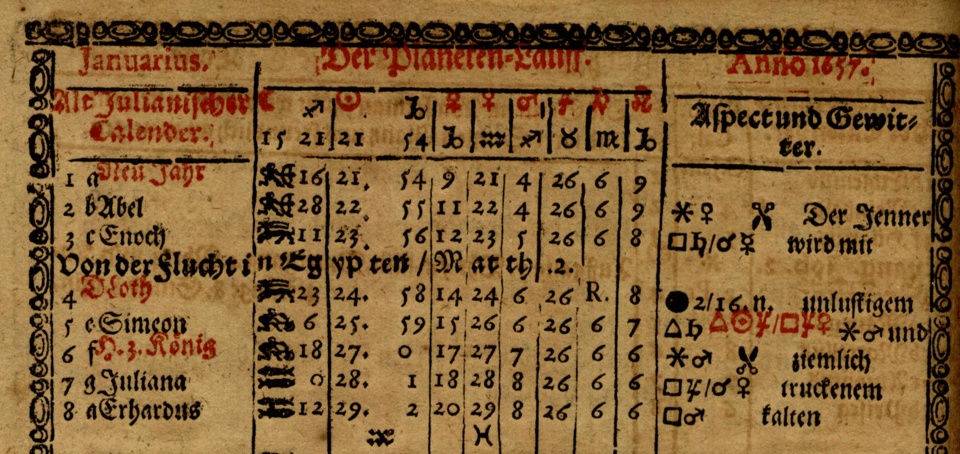 Januarius. Der Planeten-Lauff. Anno 1657.
Alt Julianischer Calender. ☾ ♐ ☉ ♑ ☿ ♀ ♂ ♃ ♄ ☊ Aspect und Gewit-
15 21 21 54 ♑ ♒ ♐ ♉ ♏ ♑ ter.
1 a Neu Jahr 16 21. 54 9 21 4 26 6 9
2 b Abel 28 22 55 11 22 4 26 6 9 ⚹ ♀ Der Jenner
3 c Enoch 11 23. 56 12 23 5 26 6 8 □ ♄ / ♂ ☿ wird mit
Von der Flucht in Egypten / Matth. 2.
4 D Loth 23 24. 58 14 24 6 26 R. 8 ● 2/16. n. unlustigem
5 e Simeon 6 25. 59 15 26 6 26 6 7 △ ♄ △ ☉ ♃ / □ ♃ ♀ ⚹ ♂ und
6 f H. 3. König 18 27. 0 17 27 7 26 6 6 ⚹ ♂ ziemlich
7 g Juliana 0 28. 1 18 28 8 26 6 6 □ ♃ / ♂ ♀ truckenem
8 a Erhardus 12 29. 2 20 29 8 26 6 6 □ ♂ kalten
♒ ♓